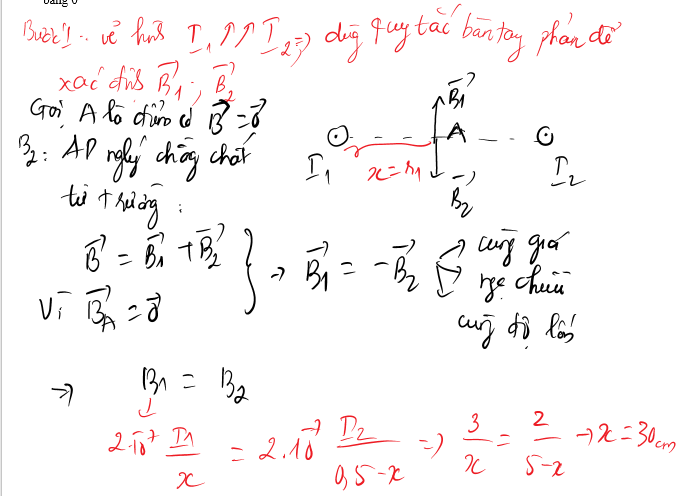 bằng 0
Bước 1: vẽ hình I₁ ↑↑ I₂ => dùng quy tắc bàn tay phải để
xác định B₁→ ; B₂→
Gọi A là điểm có B→ = 0→
B₂: AD nguyên lý chồng chất
từ trường :
B→ = B₁→ + B₂→
Vì B_A→ = 0→
} → B₁→ = -B₂→
cùng giá
ngc chiều
cùng độ lớn
B₁→
A
I₁
x = r₁
B₂→
I₂
→ B₁ = B₂
2.10⁻⁷ I₁/x = 2.10⁻⁷ I₂/(0,5-x) => 3/x = 2/(5-x) → x = 30cm